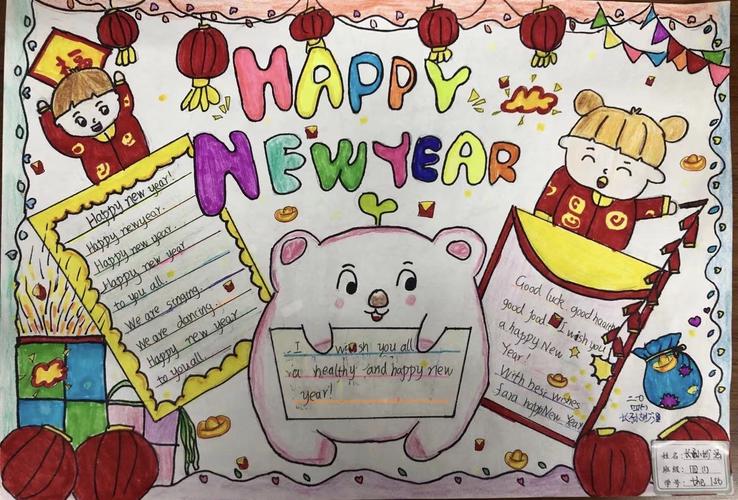 福
HAPPY
NEWYEAR
Happy new year!
Happy newyear.
Happy new year.
Happy new year
to you all.
We are singing.
We are dancing.
Happy new year
to you all
I wish you all
a healthy and happy new
year!
Good luck good health
good food I wish you
a happy New
Year!
With best wishes
for a happy New Year
二〇
四(4)
姓名:
班级: 四(4)
学号: the 1st